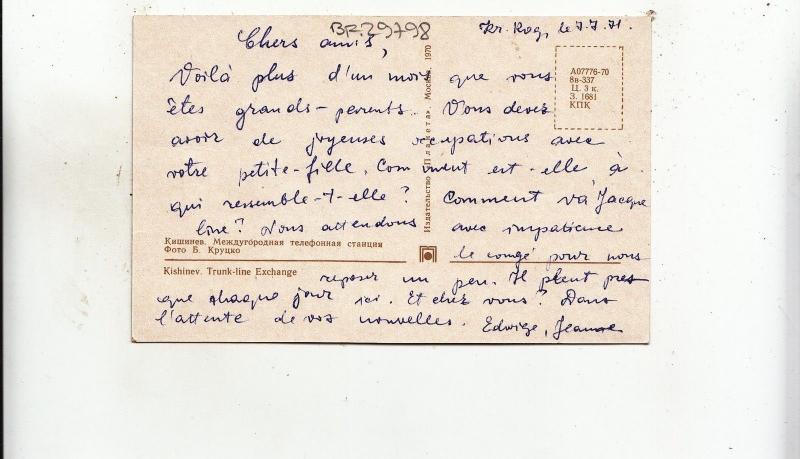 BR.29798
Kr. Rog, le 7.7.71.
Chers amis,
Voilà plus d'un mois que vous
êtes grands-parents. Vous devez
avoir de joyeuses occupations avec
votre petite-fille. Comment est-elle, à
qui ressemble-t-elle? Comment va Jacque
line? Nous attendons avec impatience
le congé pour nous
reposer un peu. Il pleut pres
que chaque jour ici. Et chez vous? Dans
l'attente de vos nouvelles. Edwige, Jeanne
А07776-70
8в-337
Ц. 3 к.
З. 1681
КПК
Издательство «Планета». Москва. 1970
Кишинев. Междугородная телефонная станция
Фото Б. Круцко
Kishinev. Trunk-line Exchange